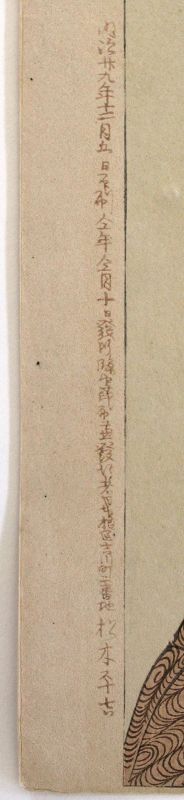 明治廿九年十二月五日印刷仝年仝月十日發行臨寫印刷兼發行者日本橋區吉川町二番地 松木平吉